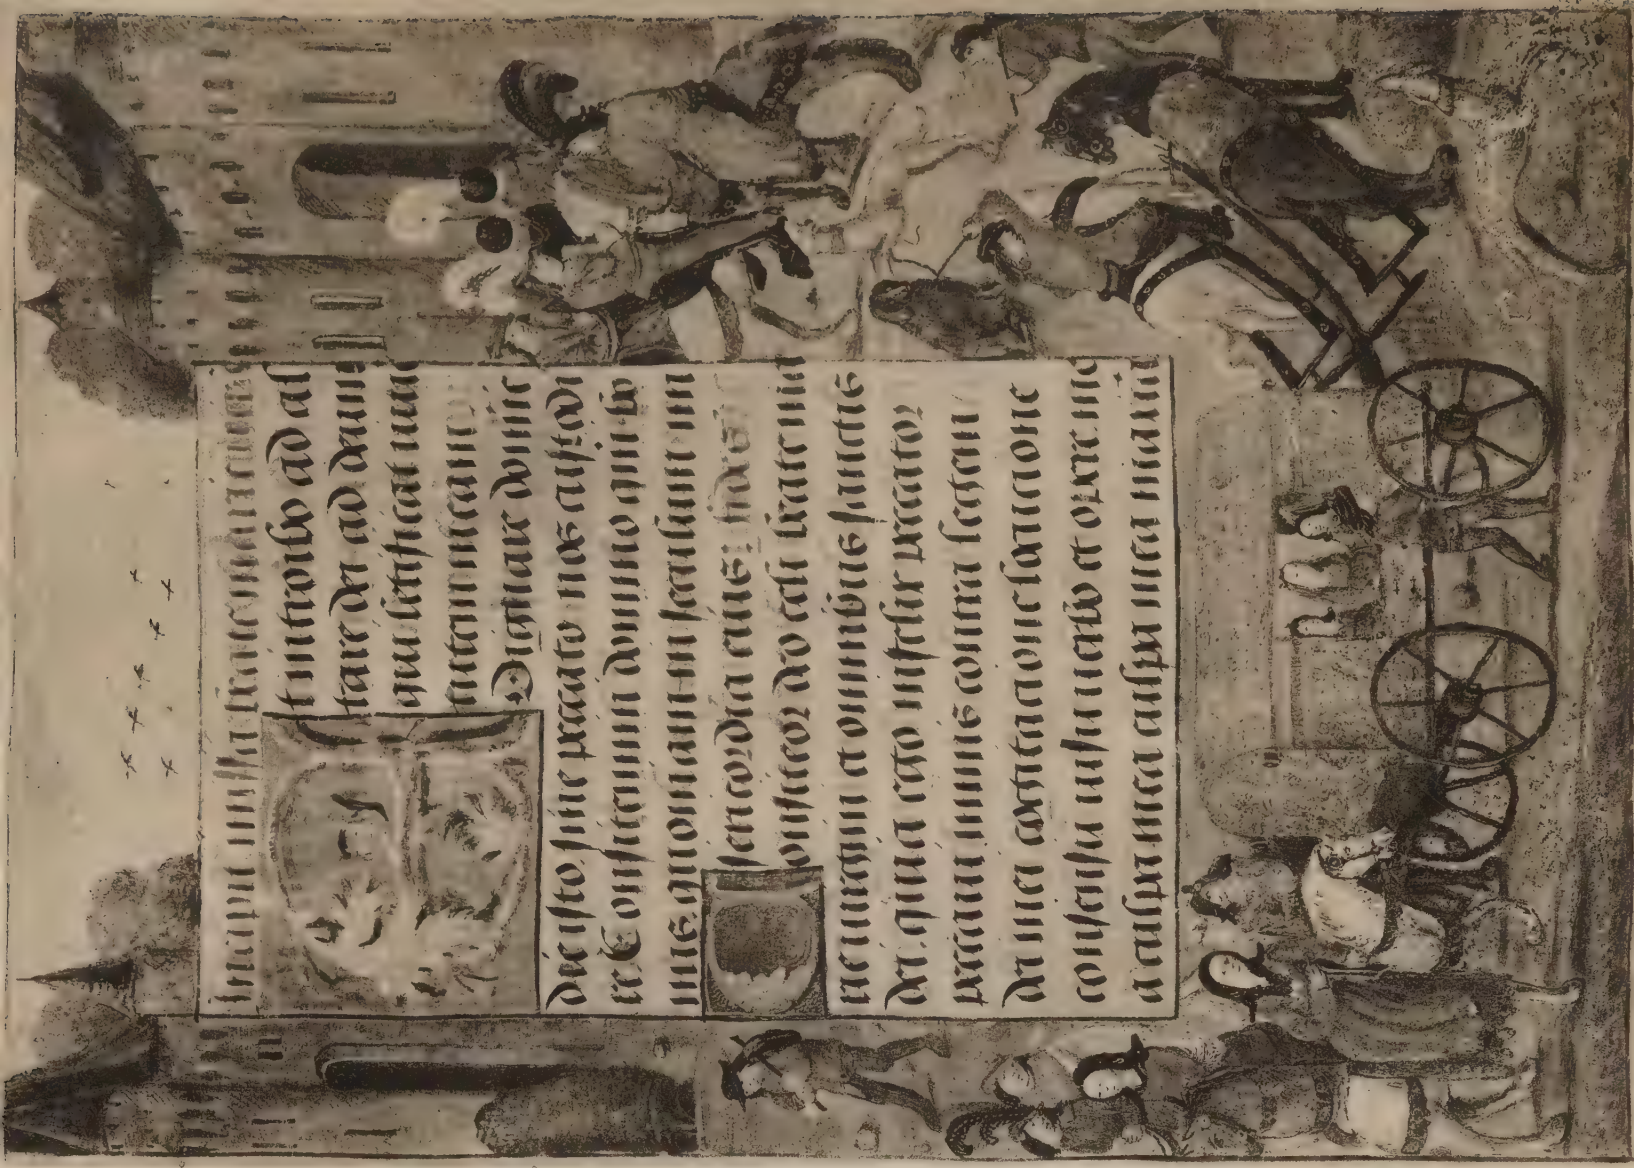 Incipit missa beate
Et introibo ad al
tare dei ad deum
qui letificat iuue
tutem meam
Dignare domine
die isto sine peccato nos custodi
re Confitemini domino qm bo
nus. quoniam in seculum mi
sericordia eius:
Confiteor deo celi beate ma
rie uirgini et omnibus sanctis
dei. quia ego miser peccator
peccaui nimis contra legem
dei mei cogitacione locucione
consensu visu uerbo et opere me
a culpa mea culpa mea maxia